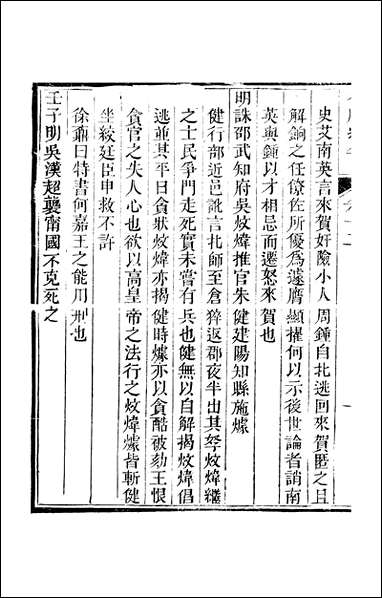 史艾南英言來賀奸險小人周鍾自北逃回來賀匿之且
解餉之任僚佐所優爲遽膺顯擢何以示後世論者誚南
英與鍾以才相忌而遷怒來賀也
明誅邵武知府吳炆煒推官朱健建陽知縣施㸌
健行部近邑訛言扎師至倉猝返郡夜半出其孥炆煒繼
之士民爭門走死實未嘗有兵也健無以自解揭炆煒倡
逃並其平日貪狀炆煒亦揭健時㸌亦以貪酷被劾王恨
貪官之失人心也欲以高皇帝之法行之炆煒㸌皆斬健
坐絞廷臣申救不許
徐鼒曰特書何嘉王之能用刑也
壬子明吳漢超襲甯國不克死之